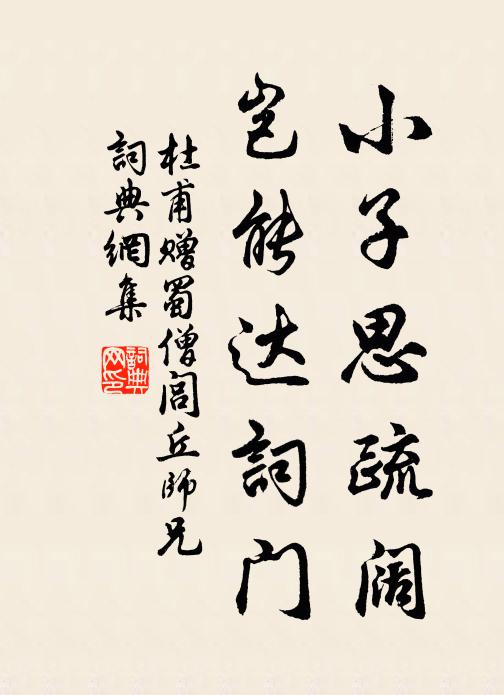 小子思疏阔
岂能达詞门
杜甫赠蜀僧闾丘師兄
詞典網集
詞典网印